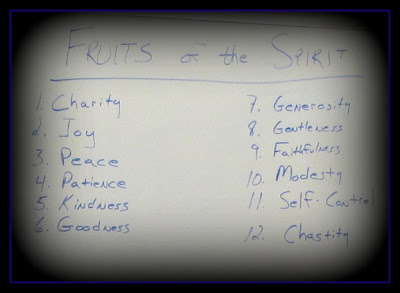 FRUITS of the SPIRIT
1. Charity
2. Joy
3. Peace
4. Patience
5. Kindness
6. Goodness
7. Generosity
8. Gentleness
9. Faithfulness
10. Modesty
11. Self-Control
12. Chastity